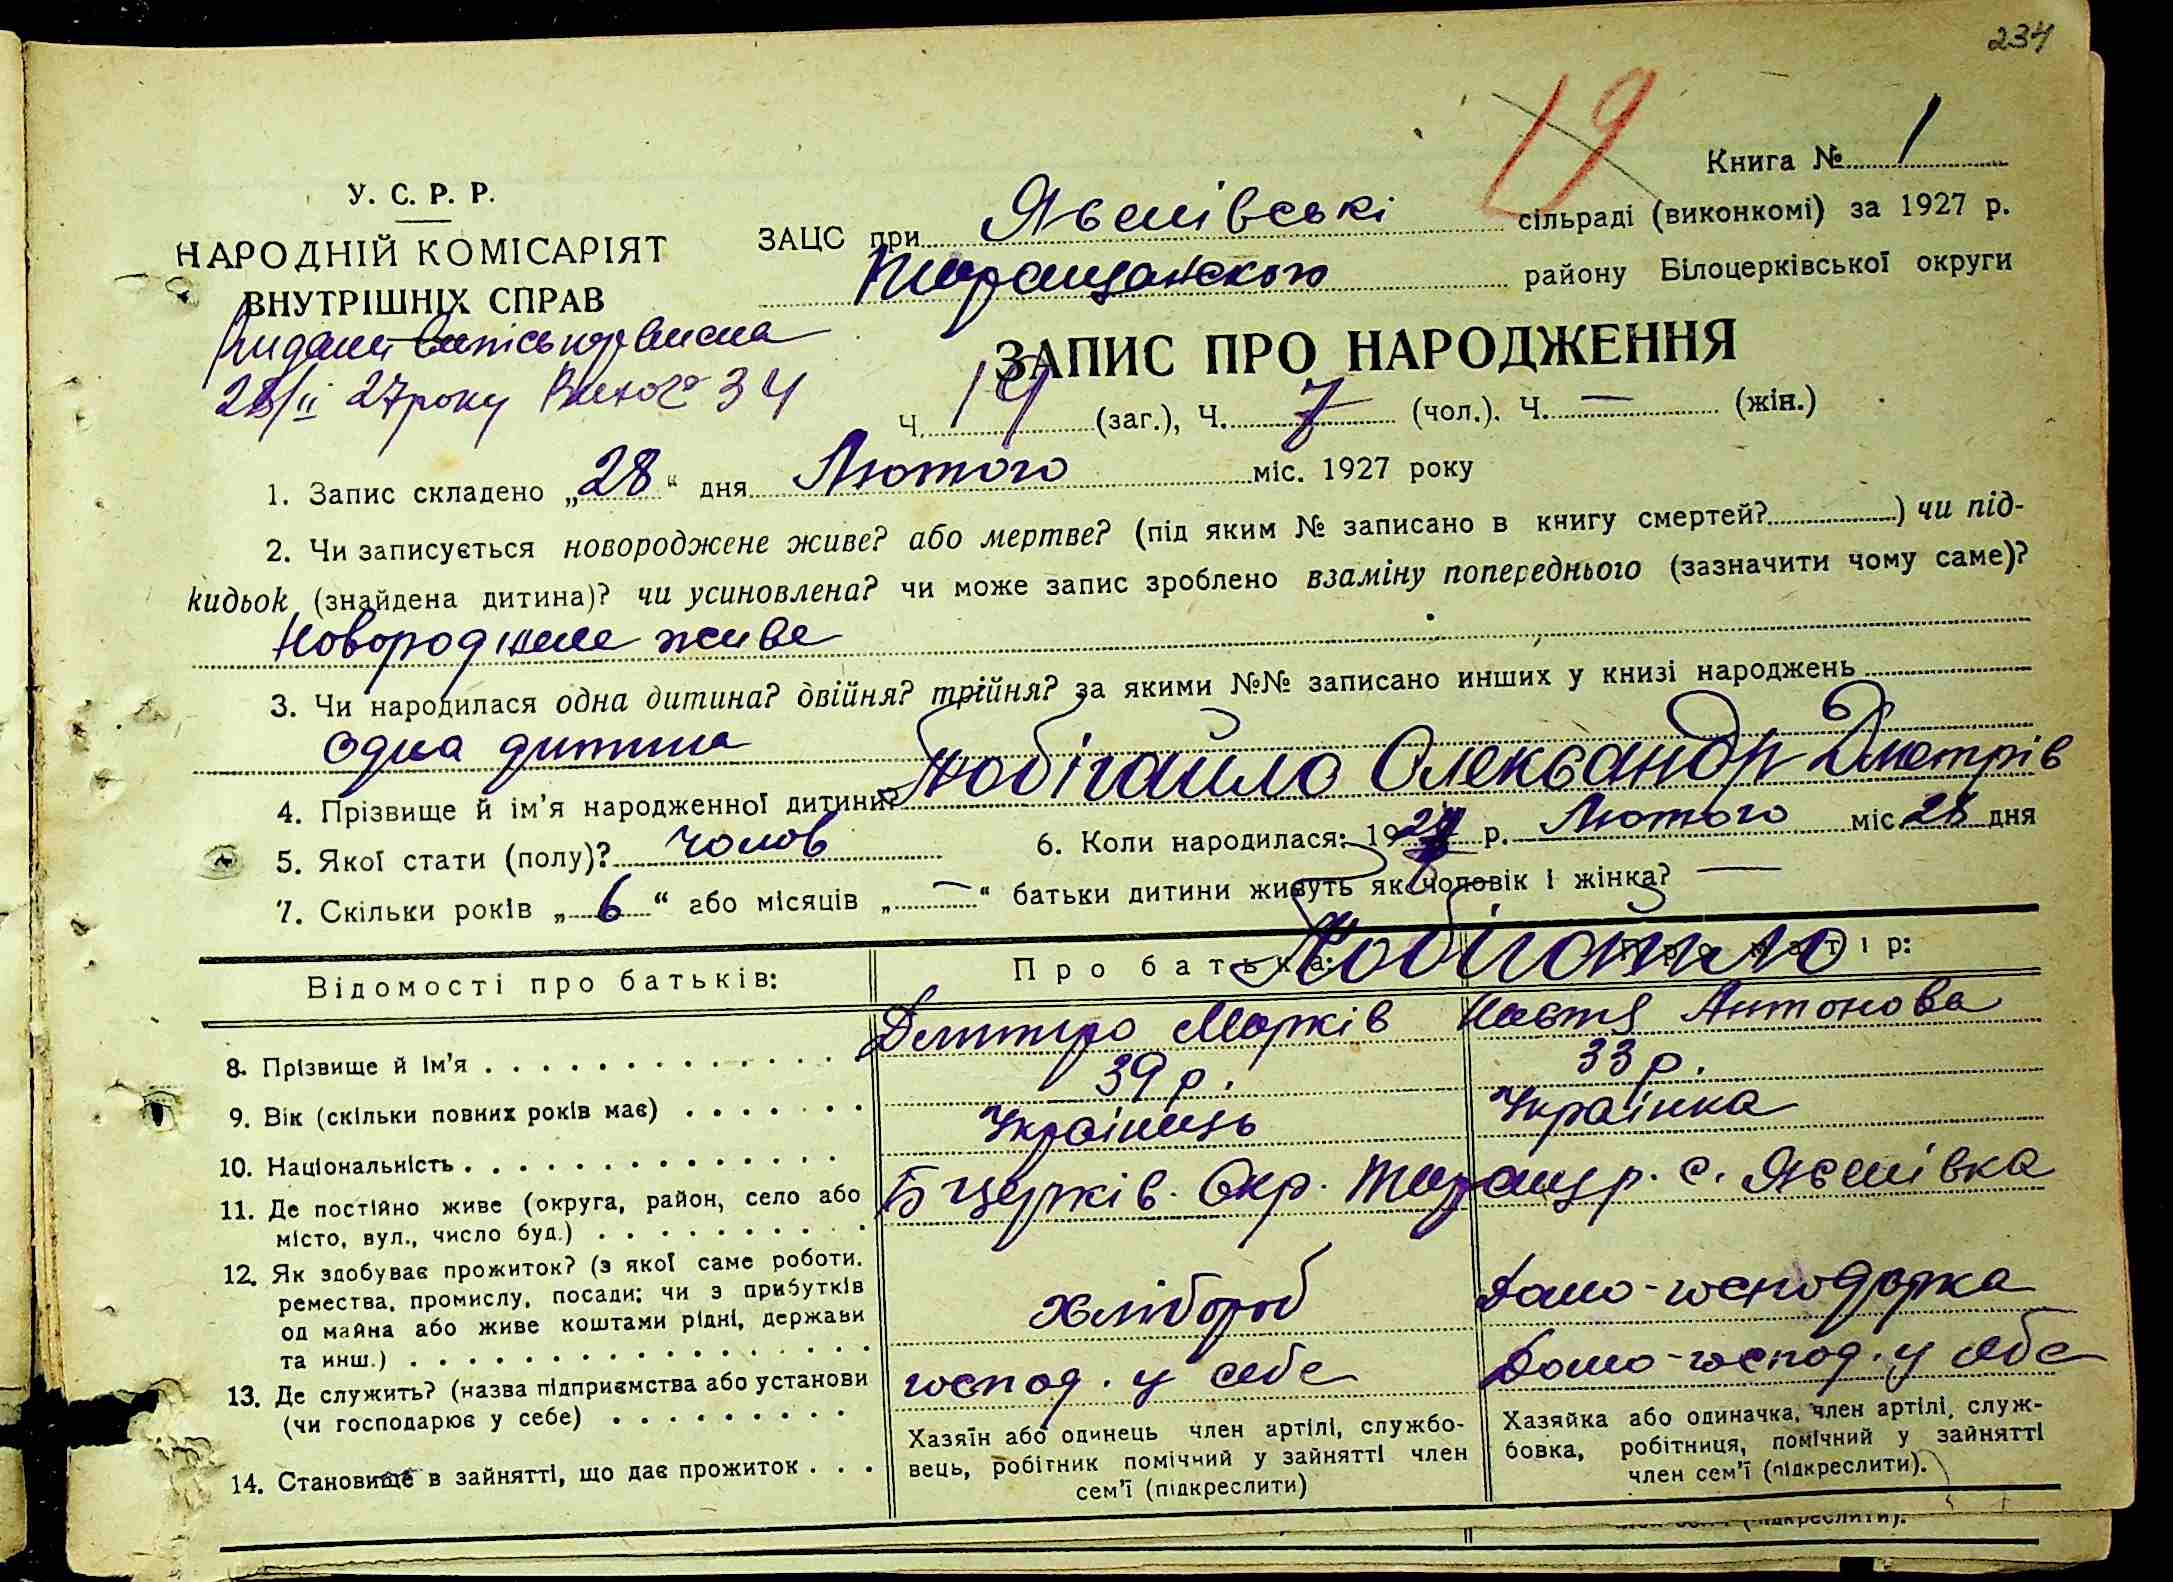 234
19
Книга № 1
У. С. Р. Р.
НАРОДНІЙ КОМІСАРІЯТ
ВНУТРІШНІХ СПРАВ
ЗАЦС при Яснівські сільраді (виконкомі) за 1927 р.
Таращанского району Білоцерківської округи
28/II 27 року 34
ЗАПИС ПРО НАРОДЖЕННЯ
Ч. 19 (заг.), Ч. 7 (чол.). Ч. — (жін.)
1. Запис складено „28“ дня Лютого міс. 1927 року
2. Чи записується новороджене живе? або мертве? (під яким № записано в книгу смертей? ) чи під-
кидьок (знайдена дитина)? чи усиновлена? чи може запис зроблено взаміну попереднього (зазначити чому саме)?
Новороджене живе
3. Чи народилася одна дитина? двійня? трійня? за якими №№ записано инших у книзі народжень
одна дитина
4. Прізвище й ім'я народженної дитини? Побігайло Олександр Дметрів
5. Якої стати (полу)? чолов 6. Коли народилася: 1927 р. Лютого міс. 28 дня
7. Скільки років „6“ або місяців „—“ батьки дитини живуть як чоловік і жінка? —
Відомості про батьків: Про батька: Про матір:
Побігайло
8. Прізвище й ім'я Дмитро Марків Настя Антонова
9. Вік (скільки повних років має) 39 р. 33 р.
10. Національність Українець Українка
11. Де постійно живе (округа, район, село або
місто, вул., число буд.) Б церків. Окр. Таращ р. с.
12. Як здобуває прожиток? (з якої саме роботи,
ремества, промислу, посади; чи з прибутків
од майна або живе коштами рідні, держави
та инш.) хлібороб Домо-господарка
13. Де служить? (назва підприємства або установи
(чи господарює у себе) господ. у себе Домо-господ. у себе
14. Становище в зайнятті, що дає прожиток
Хазяїн або одинець член артілі, службо-
вець, робітник помічний у зайнятті член
сем'ї (підкреслити)
Хазяйка або одиначка, член артілі, служ-
бовка, робітниця, помічний у зайнятті
член сем'ї (підкреслити).